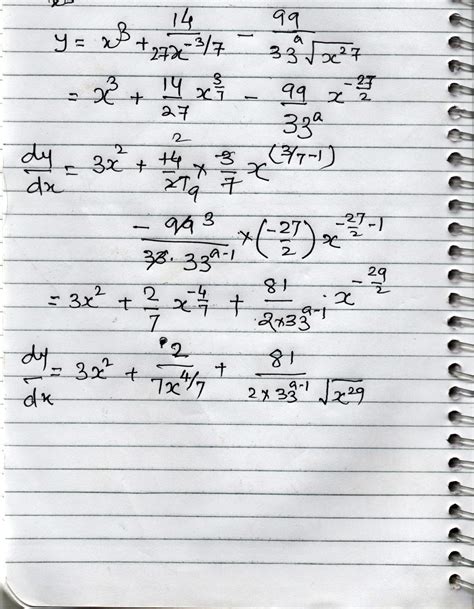 y = x³ + 14/27x^(-3/7) - 99/33^a √x^27
= x³ + 14/27 x^(3/7) - 99/33^a x^(-27/2)
dy/dx = 3x² + 14/27 2/9 × 3/7 x^(3/7-1)
- 99 3/33·33^(a-1) × (-27/2) x^(-27/2-1)
= 3x² + 2/7 x^(-4/7) + 81/2×33^(a-1) · x^(-29/2)
dy/dx = 3x² + 2/7x^(4/7) + 81/2×33^(a-1) √x^29